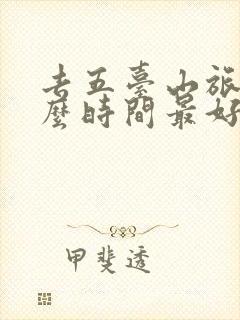 去五臺山旅
麼時間最好
甲斐透